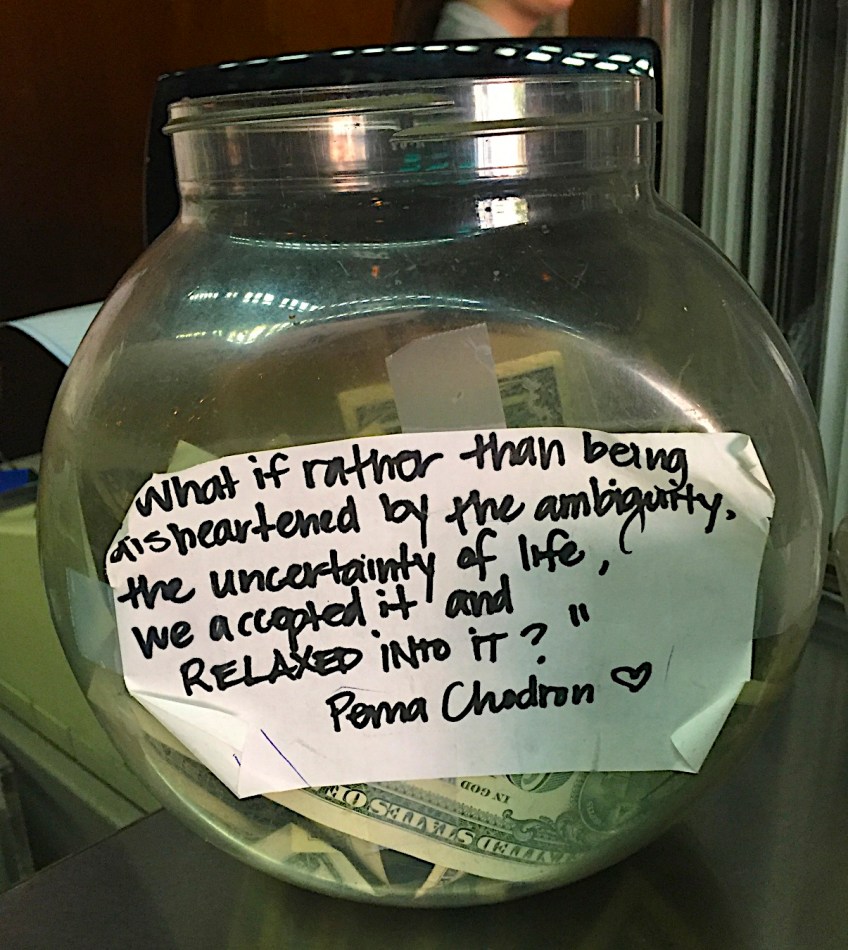 What if rather than being
disheartened by the ambiguity,
the uncertainty of life,
we accepted it and
RELAXED iNto iT? "
Pema Chodron ♡
IN GOD
UNITED STATES OF